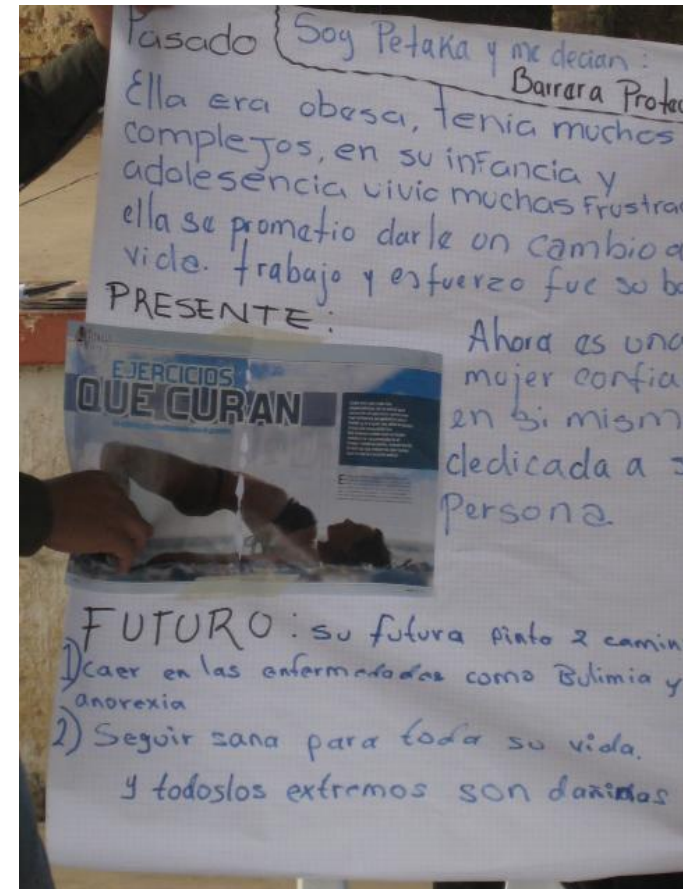 Pasado
Soy Petaka y me decian:
Barrara Protec
Ella era obesa, tenia muchos
complejos, en su infancia y
adolesencia vivio muchas Frustrac
ella se prometio darle un cambio a
vida. trabajo y esfuerzo fue su ba
PRESENTE:
Ahora es una
mujer confia
en si mism
dedicada a s
Persona.
EJERCICIOS
QUE CURAN
FUTURO: su futura pinto 2 camin
1) caer en las enfermedades como Bulimia y
anorexia
2) Seguir sana para toda su vida.
y todoslos extremos son dañinas